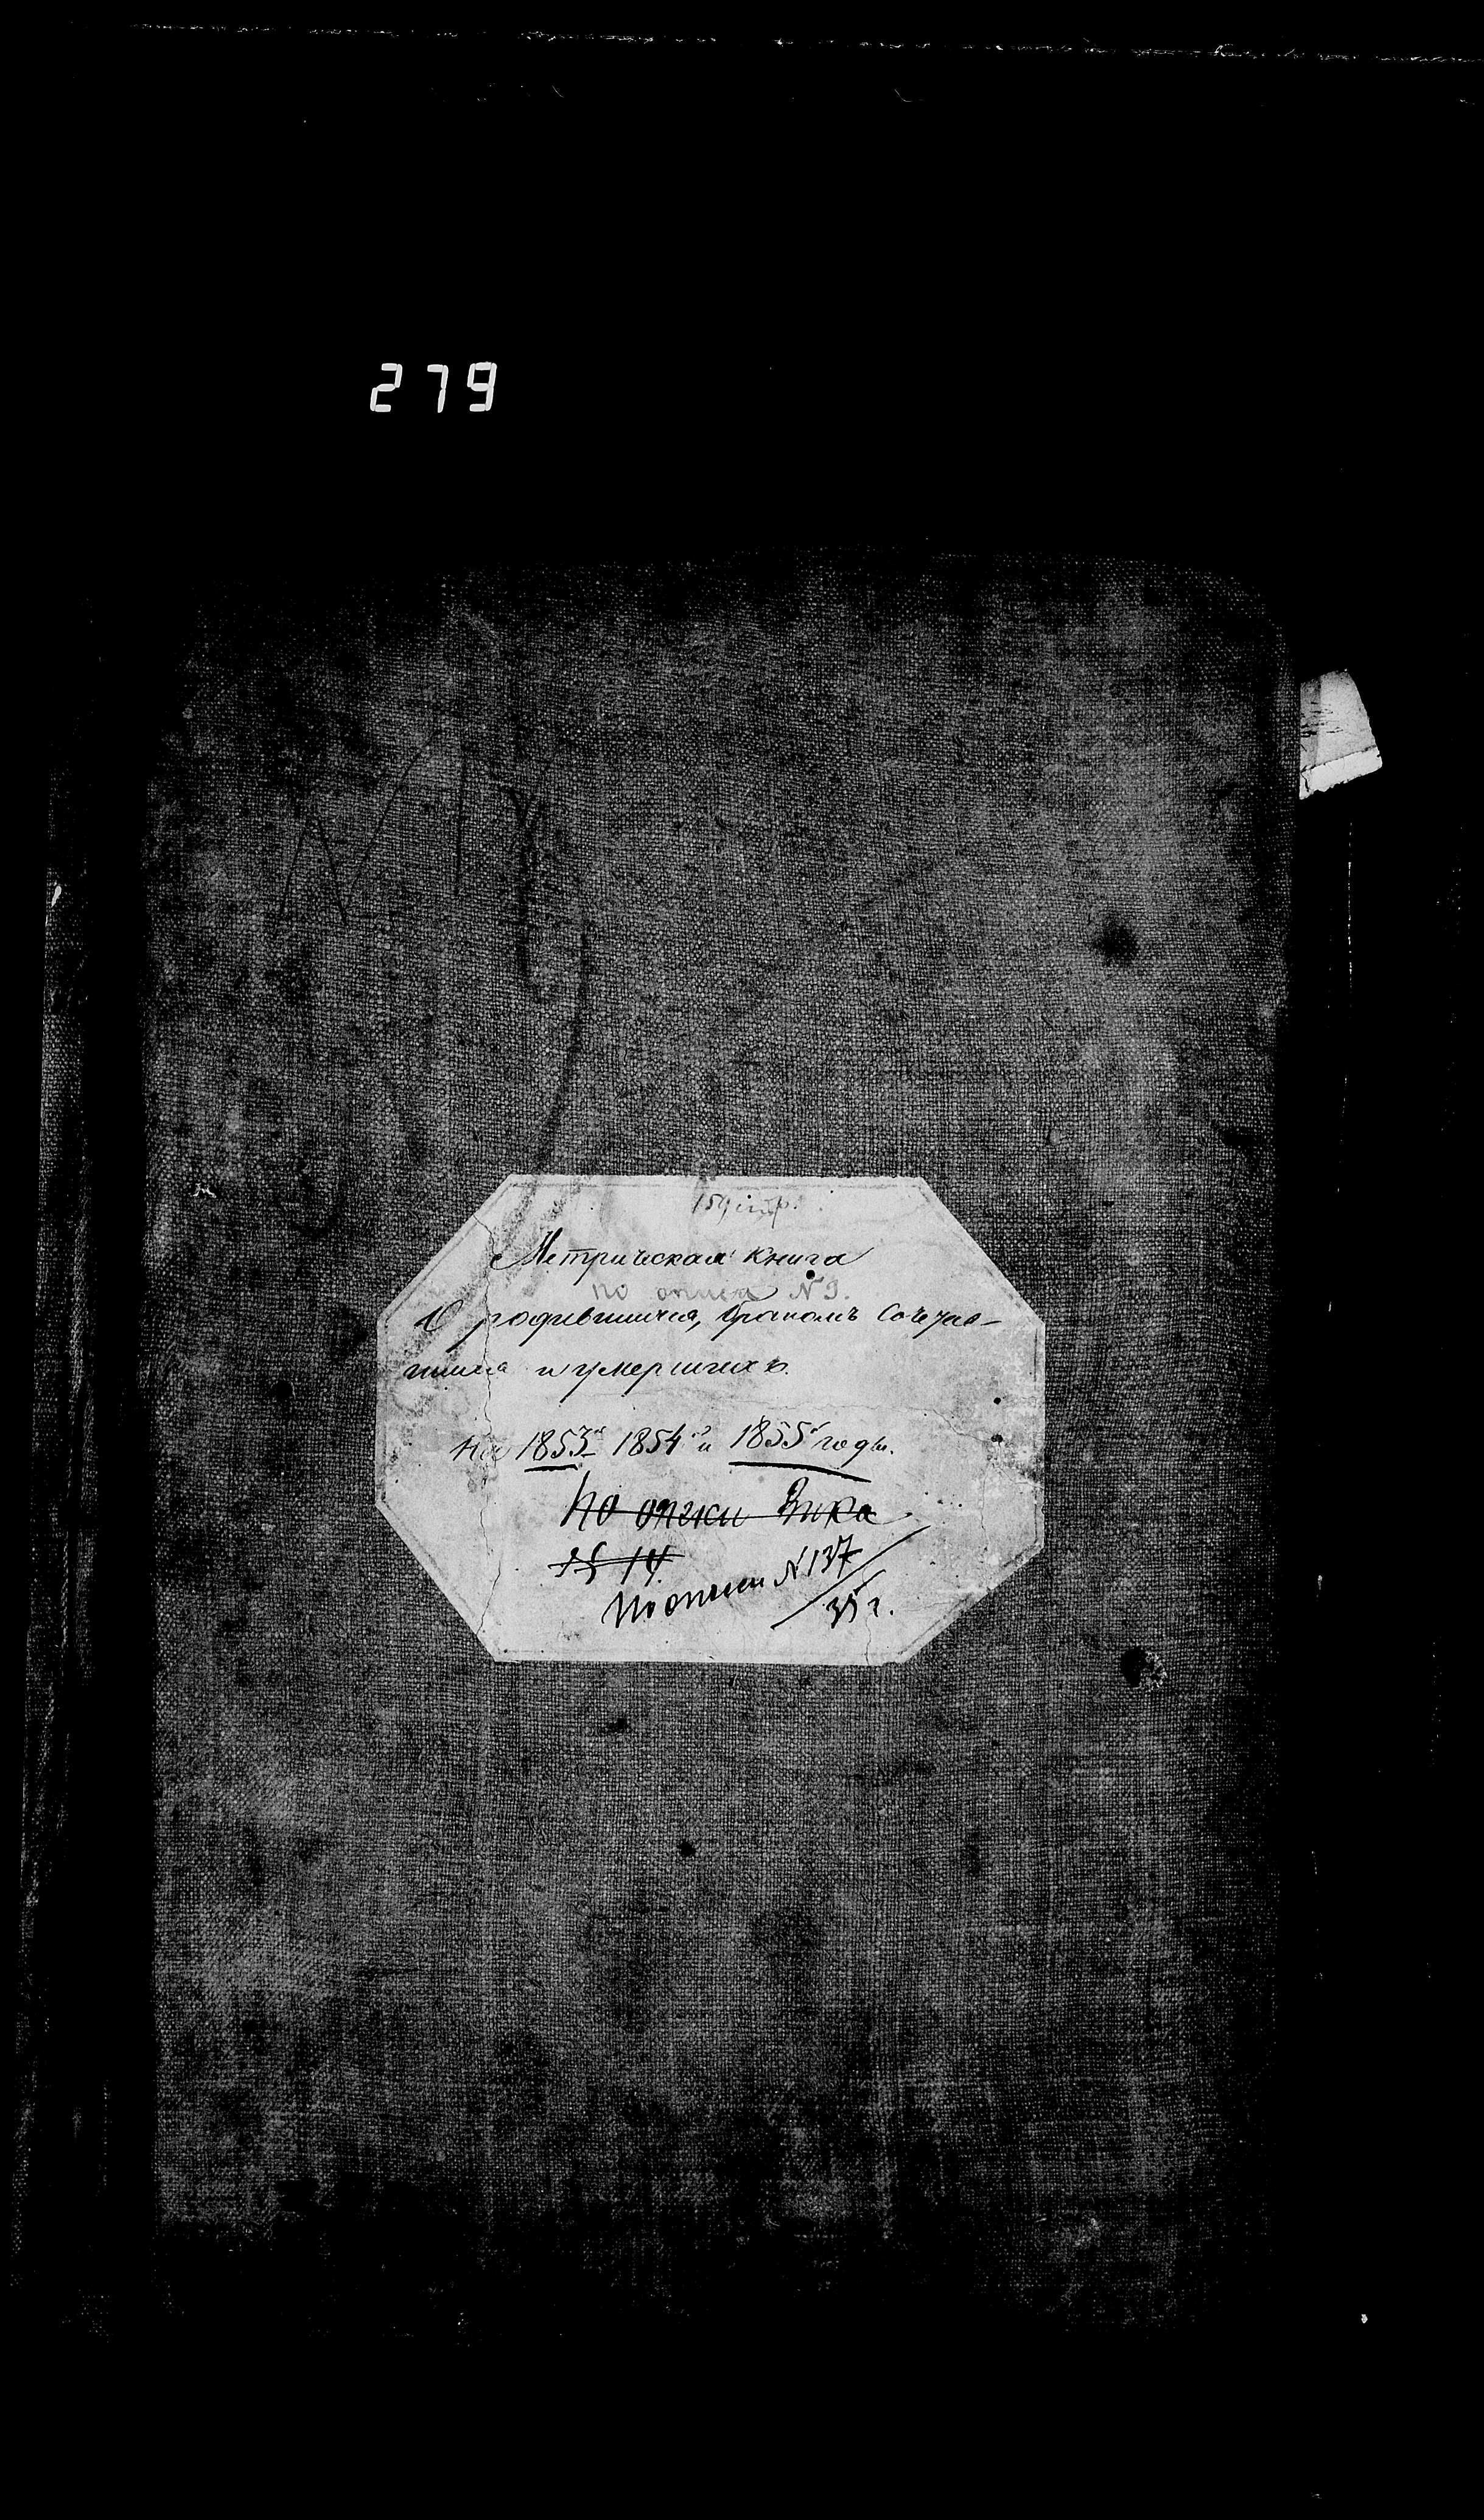 279
Метрическая книга
по описи N 9.
О родившихся, бракомъ сочетав-
шихся и умершихъ.
на 1853й 1854й и 1855й годы.
По описи
№ 14
По описи N 137
35 г.